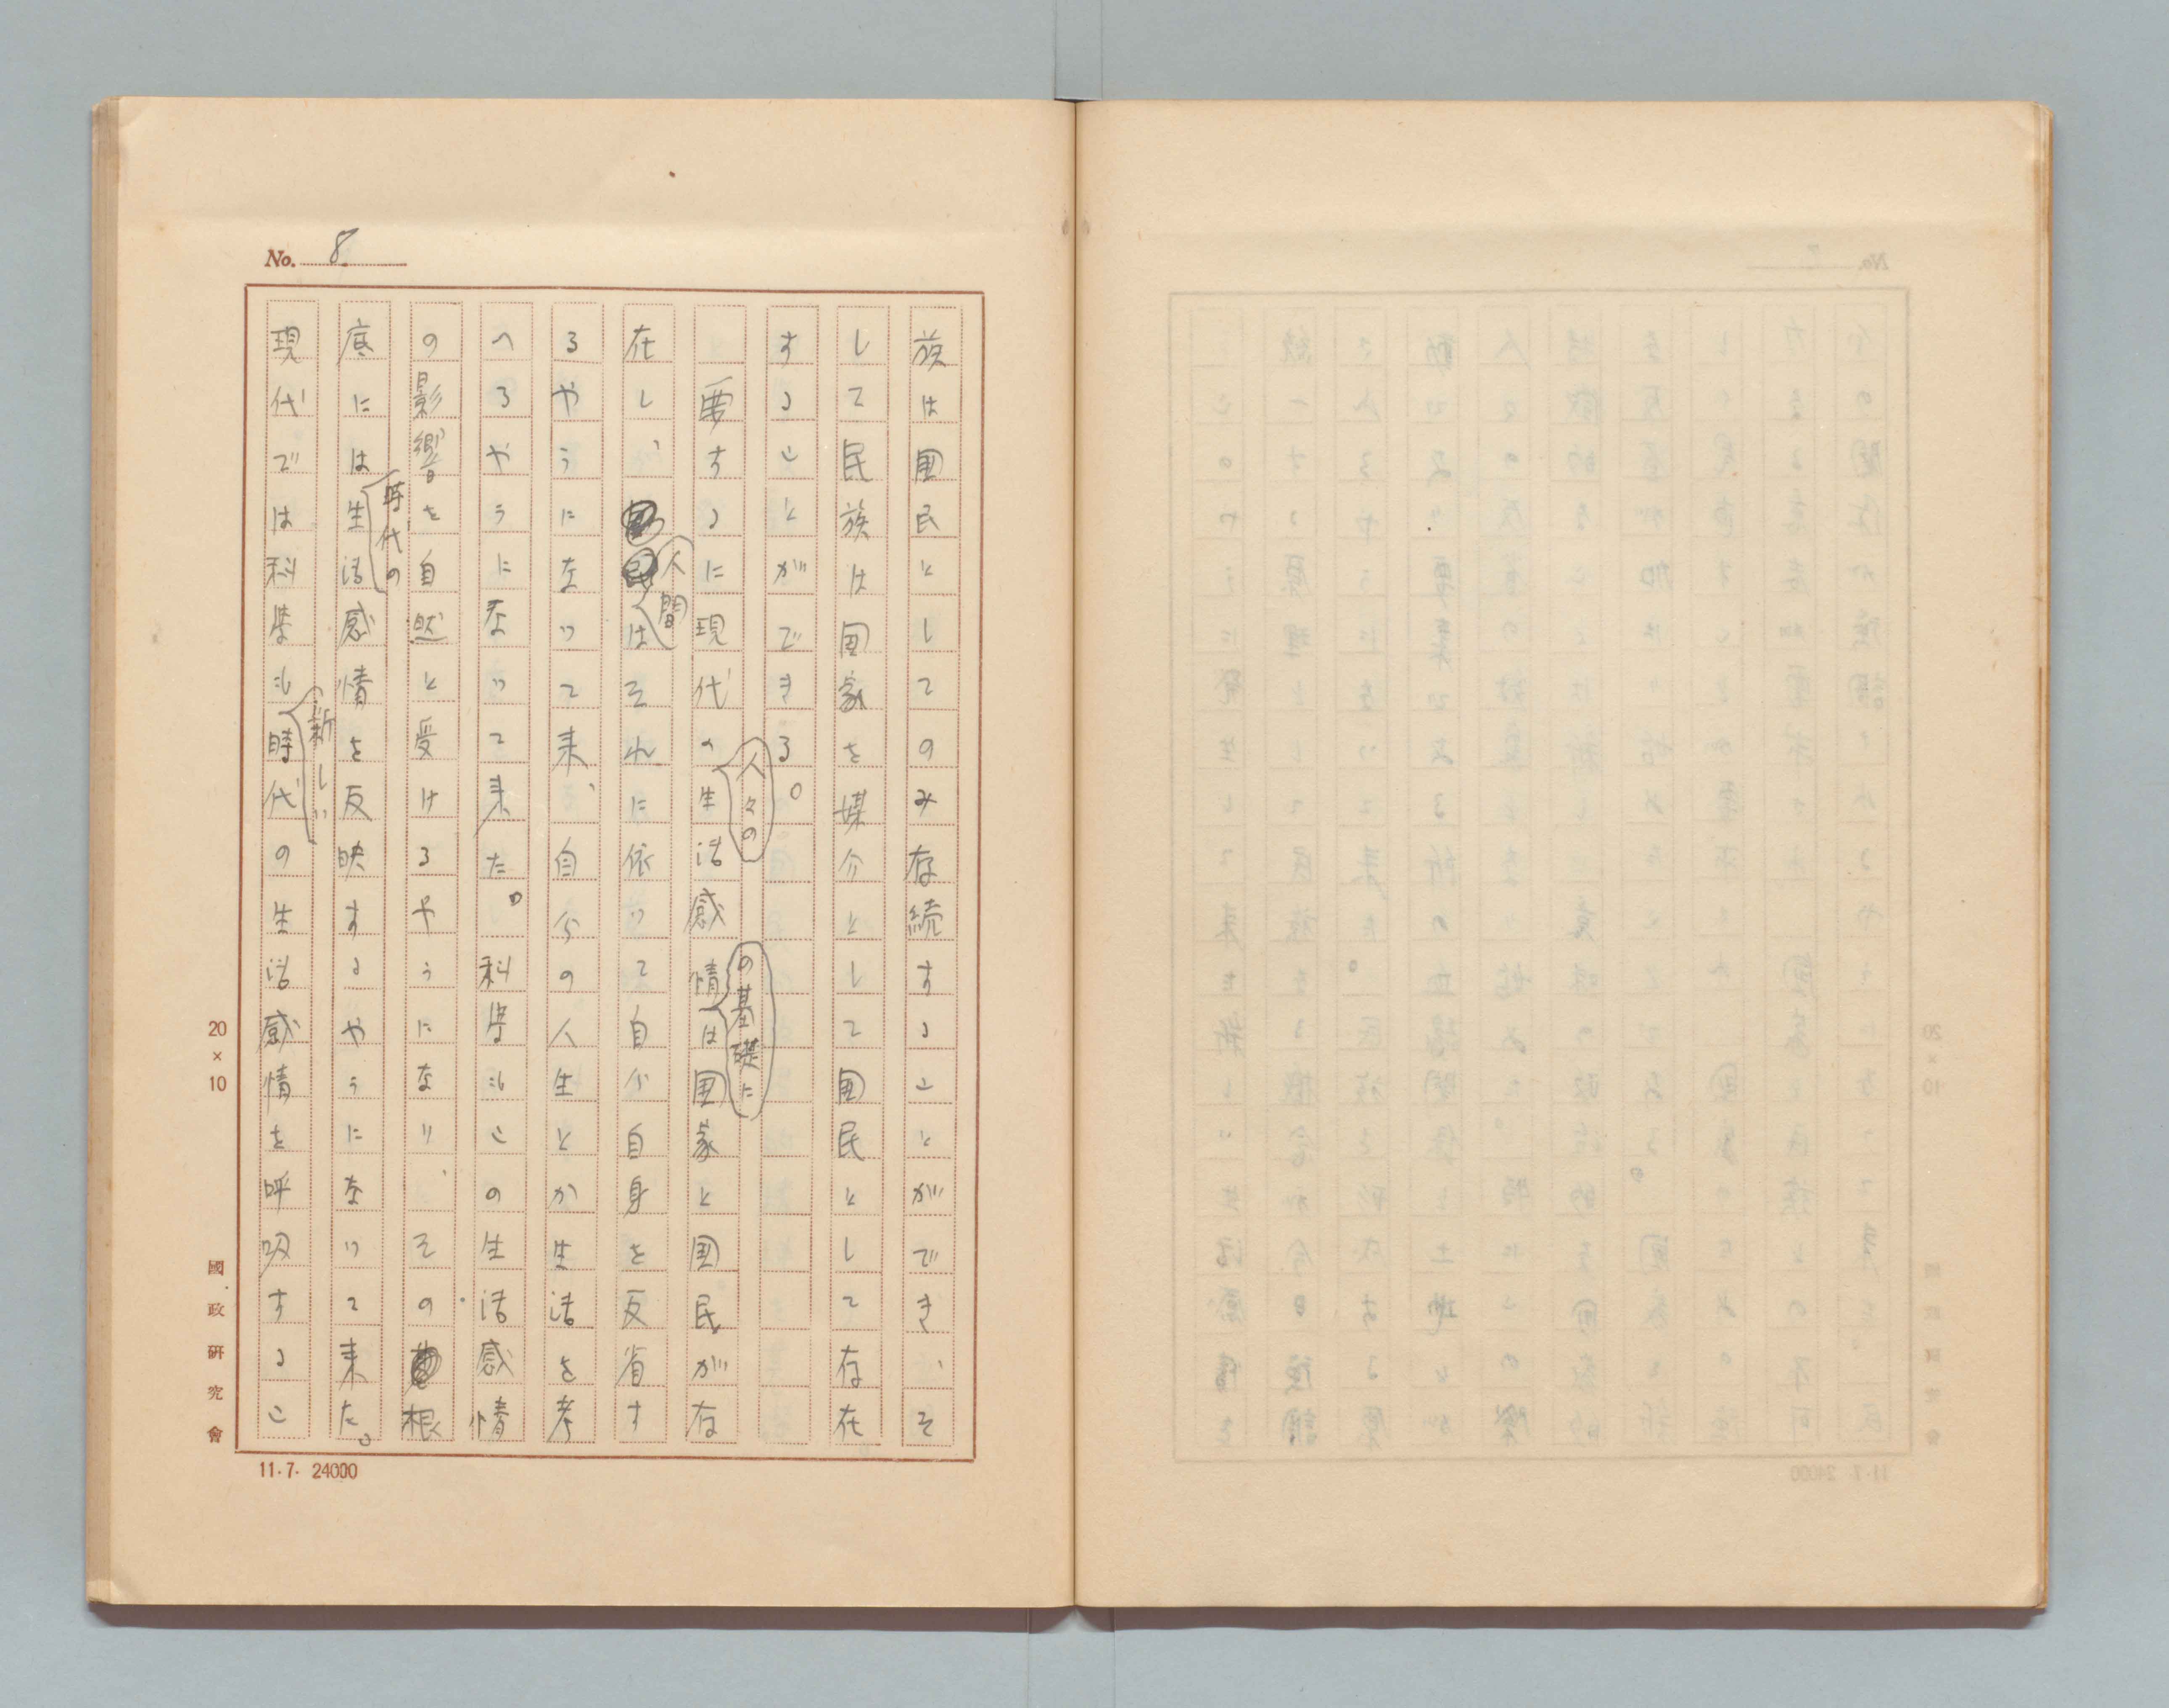 No. 8
族は国民としてのみ存続することができ、そ
して民族は国家を媒介として国民として存在
することができる。
要するに現代の人々の生活感情の基礎には国家と国民が存
在し、人間はそれに依つて自分自身を反省す
るやうになつて来、自分の人生とか生活を考
へるやうになつて来た。科学もこの生活感情
の影響を自然と受けるやうになり、その根
底には時代の生活感情を反映するやうになつて来た。
現代では科学も新しい時代の生活感情を呼吸するこ
20×10
國政研究會
11.7. 24000